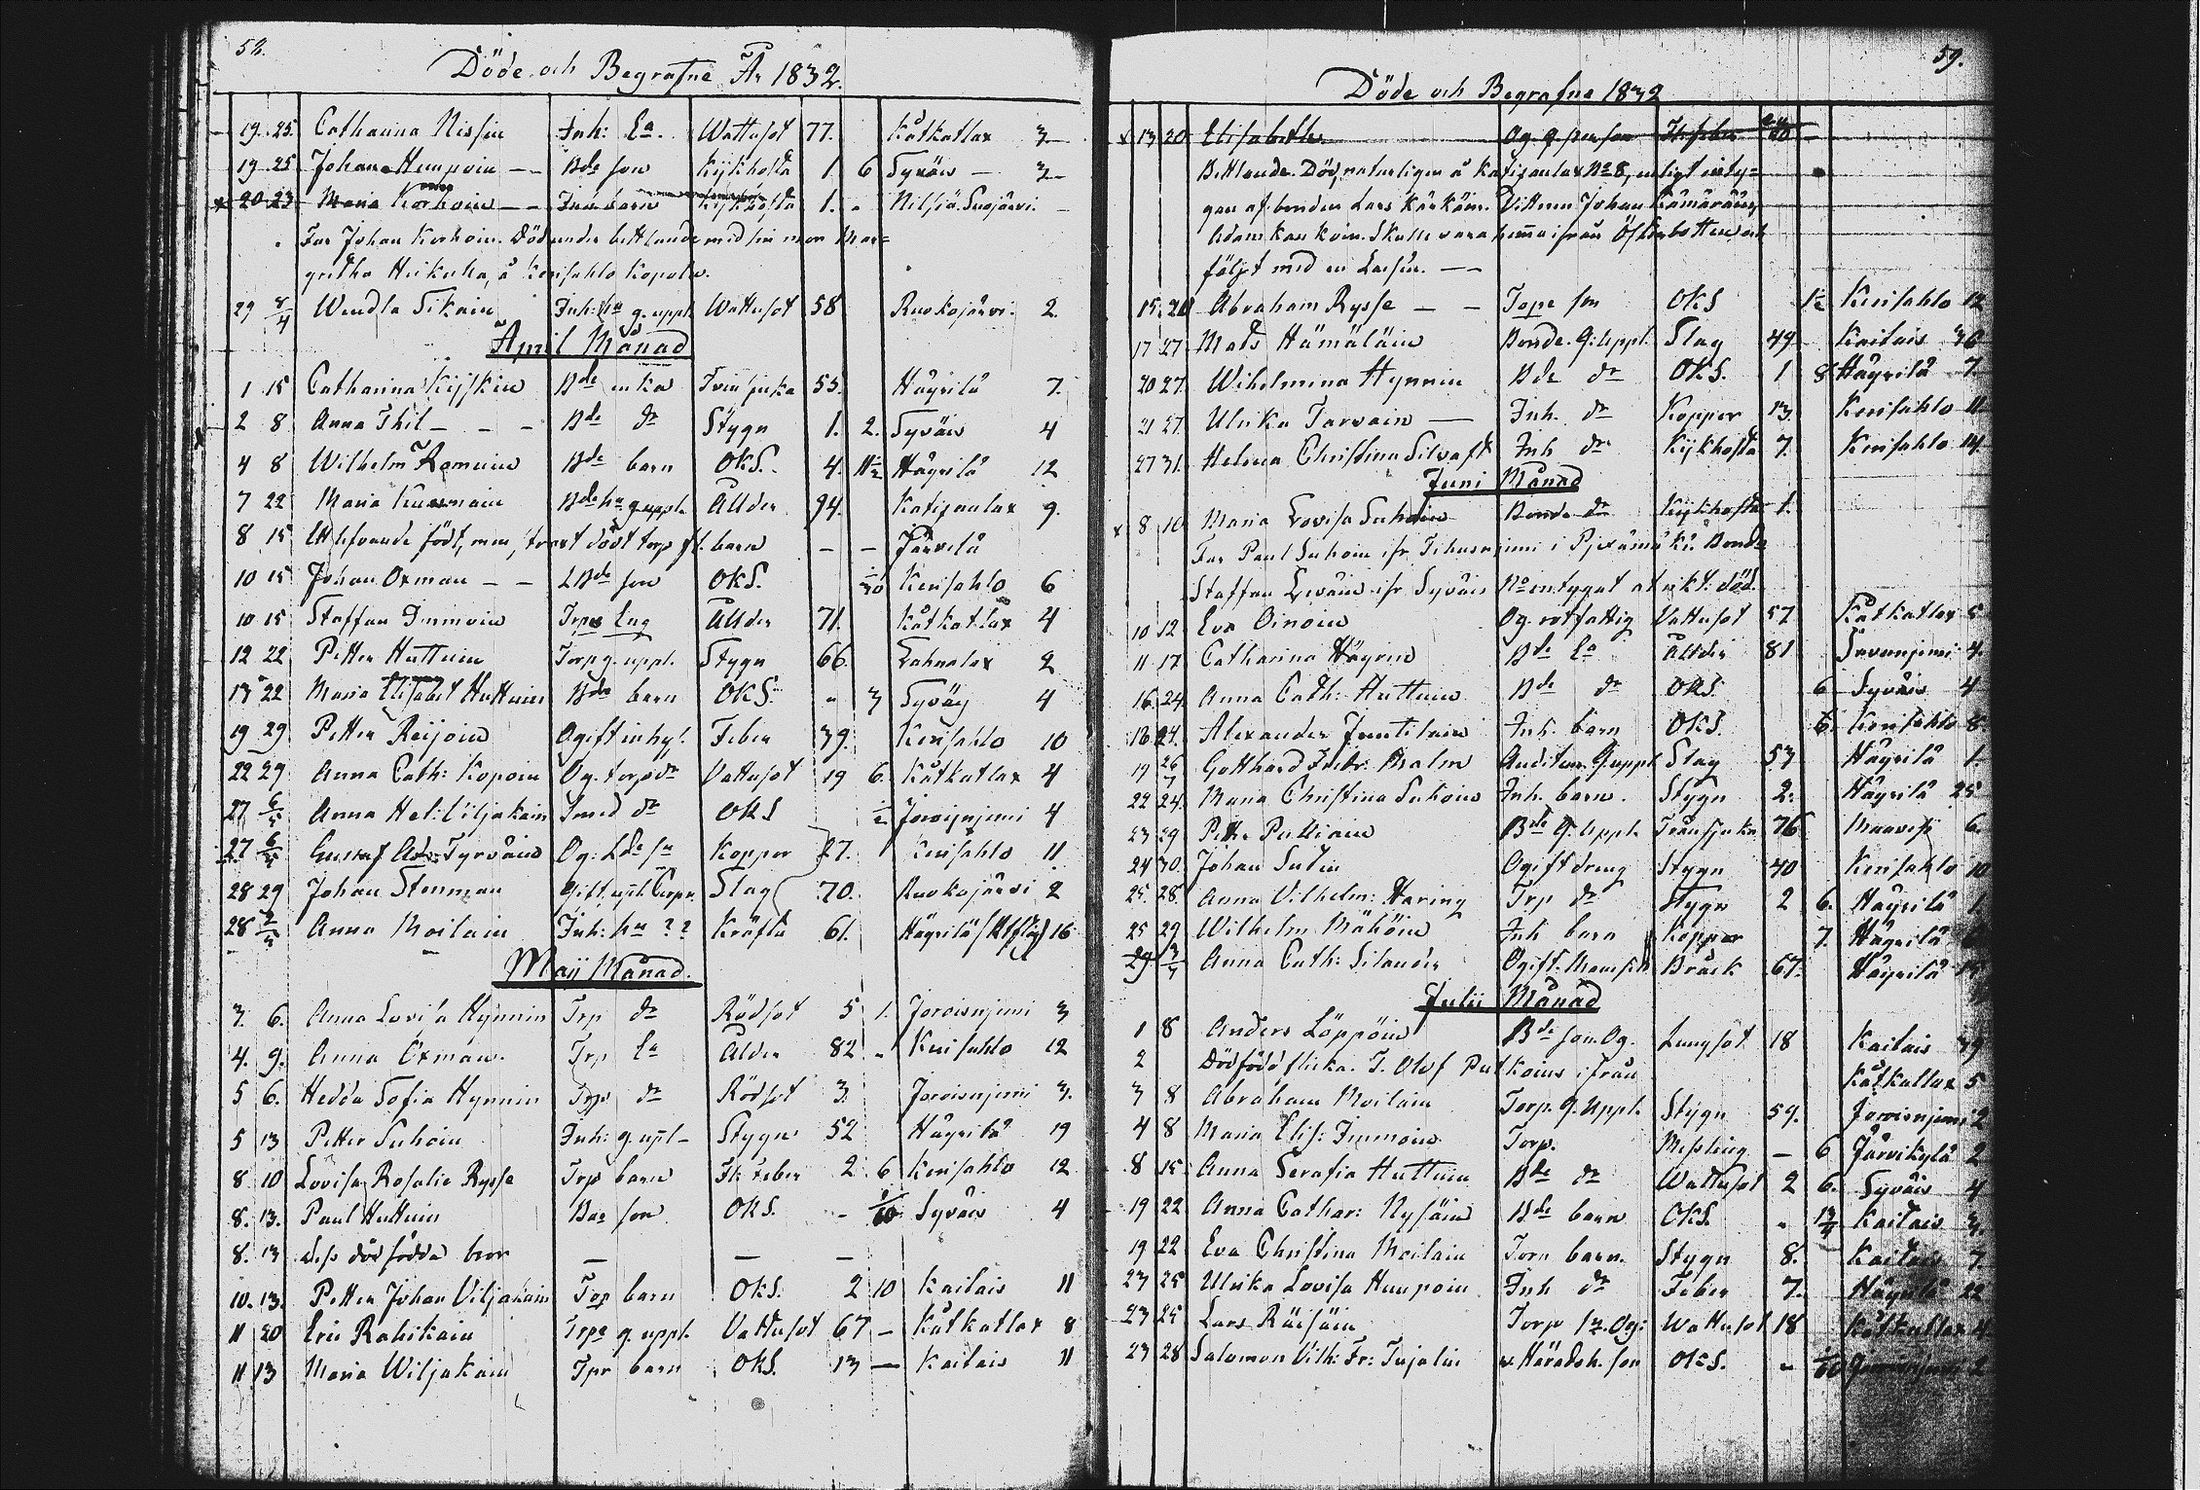 58.
Döde och Begrafne År 1832.
19. 25. Catharina Nissin Inh: Ea. Wattusot 77. Kåtkatlax 3
19 25 Johan Hempoin Bde son Kykhosta 1. 6 Syväis 3
20 23 Maria Korhoin Inh barn Kykhosta 1. Nilsiä
Far Johan Korhoin. Död under bettlande med sin mor Mar=
gretha Heikuha, å Kerisahlo
29 8/4 Wendla Tikain Inh: hu g. uppl. Wattusot 58 Ruokojärvi. 2.
April Månad
1 15 Catharina Kijskin Bde enka 55. Häyrilä 7.
2 8 Anna Thil Bde dr Stygn 1. 2. Syväis 4
4 8 Wilhelm Bde barn OkS. 4. Häyrilä 12
7 22 Maria Bde hu g. uppl. Ållder 94. Katisenlax 9.
8 15 födt, men, död torp fl. barn Järvilä
10 15 Johan Oxman Bde son OkS. 1/30 Kerisahlo 6
10 15 Staffan Immoin Torp Ållder 71. Kåtkatlax 4
12 22 Petter Huttuin Torp g. uppl. Stygn 66. Lahnalax 2
13 22 Maria Elisabet Huttuin Bde barn OkS. 3 Syväy 4
19 29 Petter Reijoin Ogift inhy. Feber 39. Kerisahlo 10
22 29 Anna Cath: Kopoin Og. torp dr Vattusot 19 6. Kåtkatlax 4
27 6/5 Anna Hel: Viljakain Smed dr OkS Joroisnjemi 4
27 6/5 Gustaf Adr: Tyrväin Og: Lde sn Koppor 27. Kerisahlo 11
28 29 Johan Stenman Gift uppl. Torpr. Slag 70. Ruokojärvi 2
28 Anna Moilain Inh: hu ?? Kräfta 61. Häyrilä 16
Maij Månad.
3. 6. Anna Lovisa Hynnin Trp dr Rödsot 5 1. Joroisnjemi 3
4. 9. Anna Oxman. Trp Ea Ålder 82 Kerisahlo 12
5 6. Hedda Sofia Hynnin Trp dr Rödsot 3. Joroisnjemi 3.
5 13 Petter Suhoin Inh: g. upl Stygn 52 Häyrilä 19
8 10 Lovisa Rosalie Rysse Trp barn Feber 2 6 Kerisahlo 12
8. 13. Paul Huttuin Bde son OkS. Syväis 4
8. 13 dess dödfödda bror
10. 13. Petter Johan Viljakain Torp barn OkS. 2 10 Kaitais 11
11 20 Eric Rahikain Torp g. uppl. Vattusot 67 Kåtkatlax 8
11 13 Maria Wiljakain Tpr barn OkS. 13 Kaitais 11
59.
Döde och Begrafne 1832
13 20 Elisabeth Og. q. person
Bettlande. Död, naturligen å Katisenlax No 8, enligt inty=
gan af bonden Lars Kärkäin. Vittnen Johan
Adam Skulle vara hemma ifrån Österbotten och
följt med en
15. 20 Abraham Rysse Torp son OkS 1/2 Kerisahlo 12
17 27. Mats Hämäläin Bonde. G. Uppl. Slag 49. Kaitais 36
20 27. Wilhelmina Hynnin Bde dr OkS. 1 8 Häyrilä 7.
21 27. Ulrika Tarvain Inh. dr Koppor 13. Kerisahlo 11
27 31. Helena Christina Silvast Inh dr Kykhosta 7. Kerisahlo 14.
Juni Månad
8 10 Maria Lovisa Suhoin Bonde dr Kykhosta 1.
Far Paul Suhoin ifr. i Pjexämäki. Bonde
Staffan ifr Syväis No intygat död.
10 12 Eva Oinoin Og. rotfattig Vattusot 57 Kåtkatlax 5
11 17 Catharina Häyrin Bde Ea Ållder 81 4.
16. 24 Anna Cath: Huttuin Bde dr OkS. 6 Syväis 4
18 24. Alexander Juntilain Inh. barn OkS. 6. Kerisahlo 8.
19 26 Gotthard Malm Auditeur. G. uppl Slag 53 Häyrilä 1.
22 24. Maria Christina Suhoin Inh. barn. Stygn 2. Häyrilä 25
23 29 Petter Bde G. Uppl. 76 Maavesi 6.
24 30. Johan Sutin Ogift dreng Stygn 40 Kerisahlo 10
25. 28. Anna Vilhelm: Haring Trp dr Stygn 2 6. Häyrilä 1.
25 29 Wilhelm Mähöin Inh barn Koppor 7. Häyrilä
29 Anna Cath: Silander Ogift. Mamsell Bråck 67. Häyrilä
Julii Månad
1 8 Anders Löppöin Bde son. Og. Lungsot 18 Kaitais 39
2 Dödfödd flicka. T. Olof ifrån Kåtkatlax 5
3 8 Abraham Moilain Torp. g. uppl. Stygn 59. Joroisnjemi 2
4 8 Maria Elis: Immoin Torp. Messling 6 Järvikylä 2
8 15 Anna Serafia Huttuin Bde dr Wattusot 2 6. Syväis 4
19 22 Anna Cathar: Nysäin Bde barn OkS. Kaitais 3.
19 22 Eva Christina Moilain Torp barn. Stygn 8. Kaitais 7
23 25 Ulrika Lovisa Humpoin Inh dr Feber 7. Häyrilä 22
23 25 Lars Räisäin Torp Og: Wattusot 18 Kåtkatlax 4
23 28 Salomon Vilh: Fr: Tujulin v. Häradsh. son OkS. Joroisnjemi 2